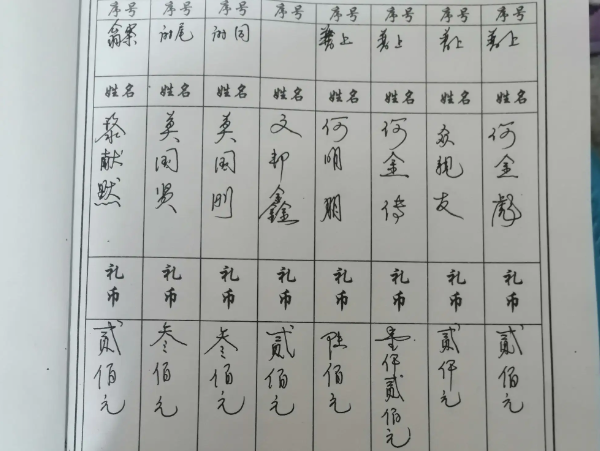 序号
上
姓名
何金彪
礼币
贰佰元
序号
上
姓名
友
礼币
贰仟元
序号
上
姓名
何金
礼币
壹仟贰佰元
序号
上
姓名
何明朋
礼币
陆佰元
序号
姓名
文邦鑫
礼币
贰佰元
序号
姓名
莫国刚
礼币
叁佰元
序号
尾
姓名
莫国贤
礼币
叁佰元
序号
姓名
黎献默
礼币
贰佰元